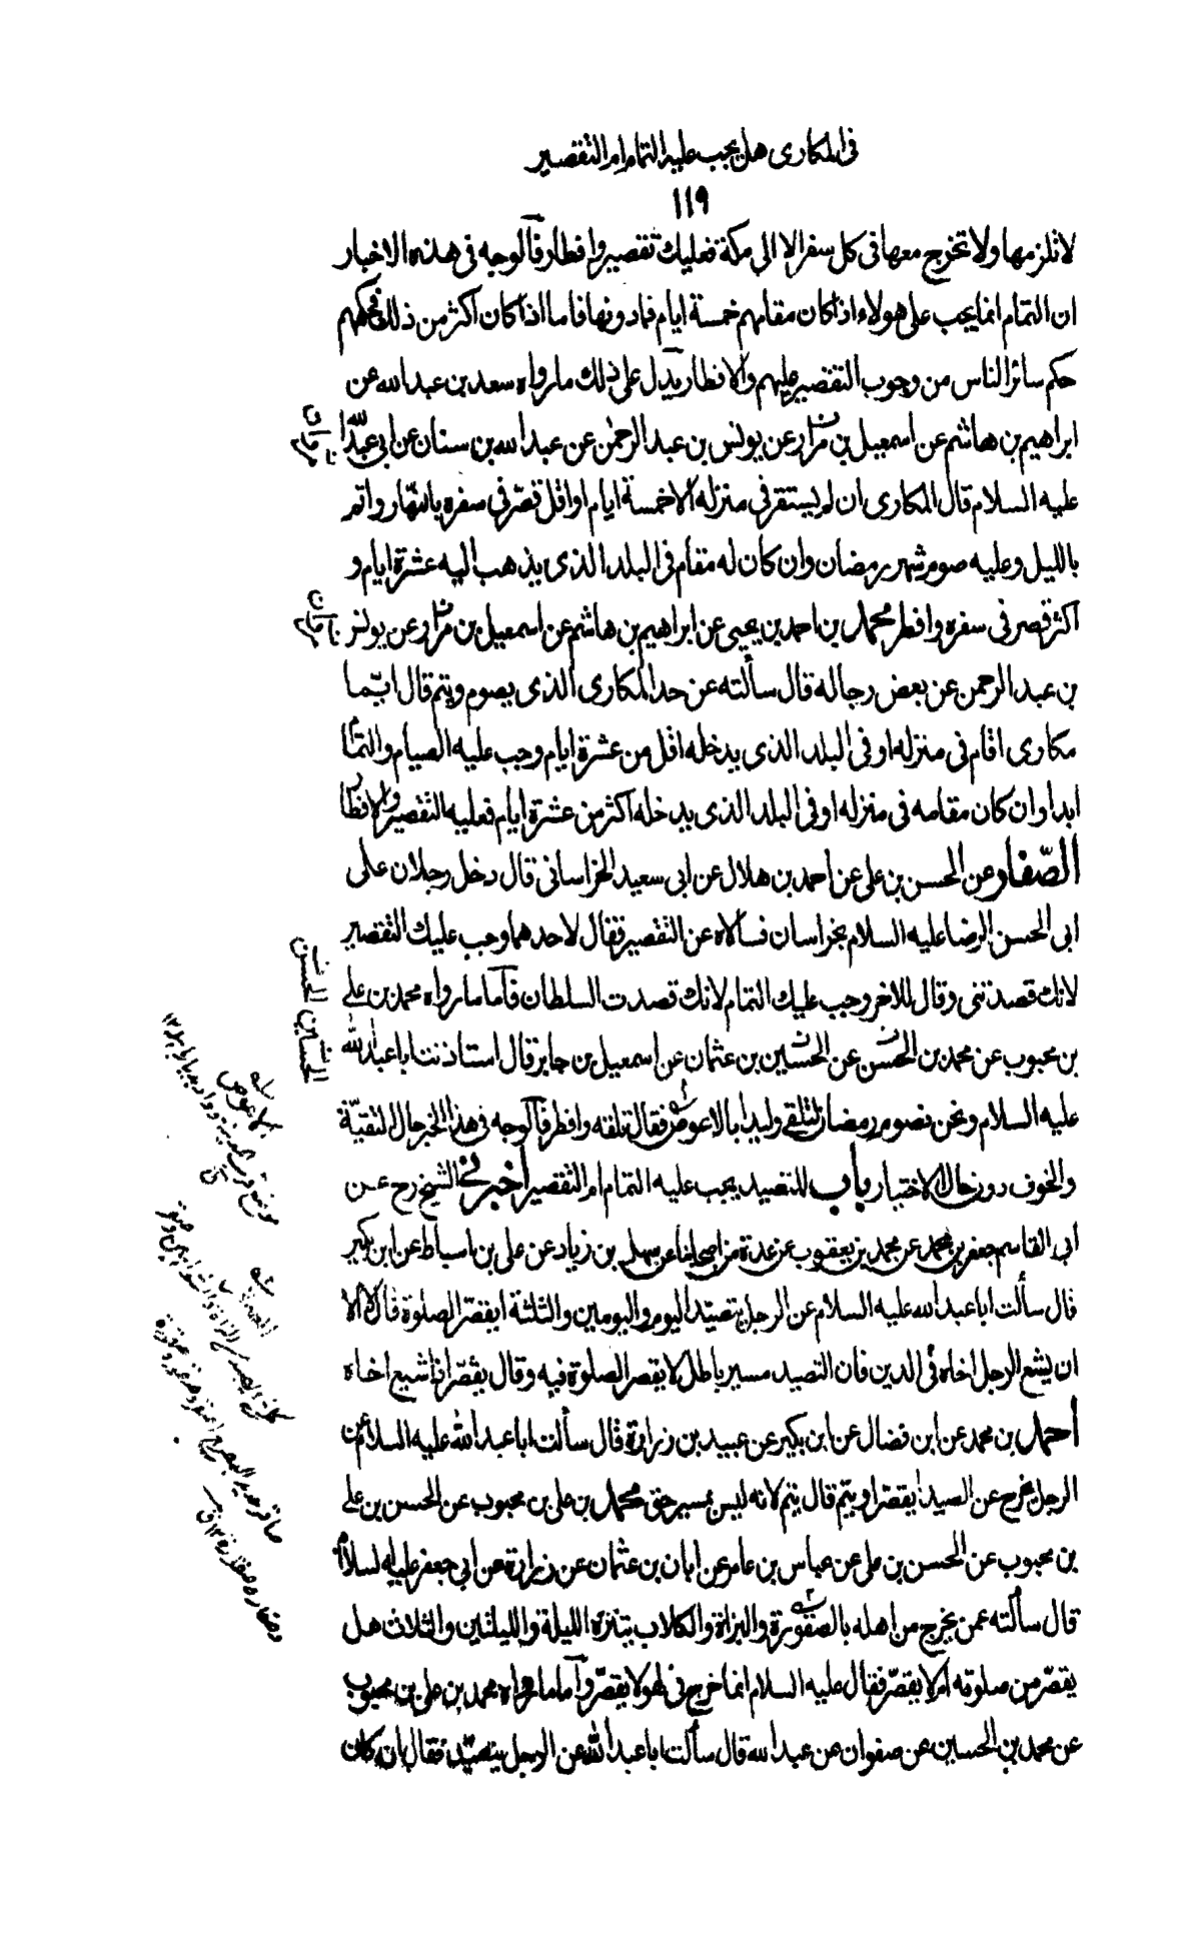 فى المكارى هل يجب عليه التمام ام التقصير
١١٩
لا تلزمها ولا تخرج معها فى كل سفر الا الى مكة فعليك تقصير وافطار فالوجه فى هذه الاخبار
ان التمام انما يجب على هولاء اذا كان مقامهم خمسة ايام فما دونها فاما اذا كان اكثر من ذلك فحكمهم
حكم سائر الناس من وجوب التقصير عليهم والافطار يدل على ذلك ما رواه سعد بن عبد الله عن
ابراهيم بن هاشم عن اسمعيل بن مرار عن يونس بن عبد الرحمن عن عبد الله بن سنان عن ابى عبد الله
عليه السلام قال المكارى ان لم يستقر فى منزله الا خمسة ايام او اقل قصر فى سفره بالنهار واتم
بالليل وعليه صوم شهر رمضان وان كان له مقام فى البلد الذى يذهب اليه عشرة ايام و
اكثر قصر فى سفره وافطر محمد بن احمد بن يحيى عن ابراهيم بن هاشم عن اسمعيل بن مرار عن يونس
بن عبد الرحمن عن بعض رجاله قال سألته عن حد المكارى الذى يصوم ويتم قال ايّما
مكارى اقام فى منزله او فى البلد الذى يدخله اقل من عشرة ايام وجب عليه الصيام والتمام
ابدا وان كان مقامه فى منزله او فى البلد الذى يدخله اكثر من عشرة ايام فعليه التقصير والافطار
الصّفار عن الحسن بن على عن احمد بن هلال عن ابى سعيد الخراسانى قال دخل رجلان على
ابى الحسن الرضا عليه السلام بخراسان فسألاه عن التقصير فقال لاحدهما وجب عليك التقصير
لانك قصدتنى وقال للاخر وجب عليك التمام لانك قصدت السلطان فاما ما رواه محمد بن على
بن محبوب عن محمد بن الحسن عن الحسين بن عثمان عن اسمعيل بن جابر قال استاذنت ابا عبد الله
عليه السلام ونحن نصوم رمضان لنلقى وليدا بالاعوص فقال تلقه وافطر فالوجه فى هذا الخبر حال التقيّة
والخوف دون حال الاختيار باب المتصيد يجب عليه التمام ام التقصير اخبرنى الشيخ رح عن
ابى القاسم جعفر بن محمد عن محمد بن يعقوب عن عدة من اصحابنا عن سهل بن زياد عن على بن اسباط عن ابن بكير
قال سألت ابا عبد الله عليه السلام عن الرجل يتصيّد اليوم واليومين والثلثة ايقصّر الصلوة قال لا الا
ان يشيع الرجل اخاه فى الدين فان التصيد مسير باطل لا يقصر الصلوة فيه وقال يقصّر اذا شيع اخاه
احمد بن محمد عن ابن فضال عن ابن بكير عن عبيد بن زرارة قال سألت ابا عبد الله عليه السلام عن
الرجل يخرج عن الصيد ايقصّر او يتم قال يتم لانه ليس بمسير حق محمد بن على بن محبوب عن الحسن بن على
بن محبوب عن الحسن بن على عن عباس بن عامر عن ابان بن عثمان عن زرارة عن ابى جعفر عليه السلام
قال سألته عمن يخرج من اهله بالصقورة والبزاة والكلاب يتنزه الليلة والليلتين والثلاث هل
يقصّر من صلوته ام لا يقصّر فقال عليه السلام انما خرج فى لهو لا يقصّر واما ما رواه محمد بن على بن محبوب
عن محمد بن الحسين عن صفوان عن عبد الله قال سألت ابا عبد الله عن الرجل يتصيّد فقال ان كان
الحسين الحسن